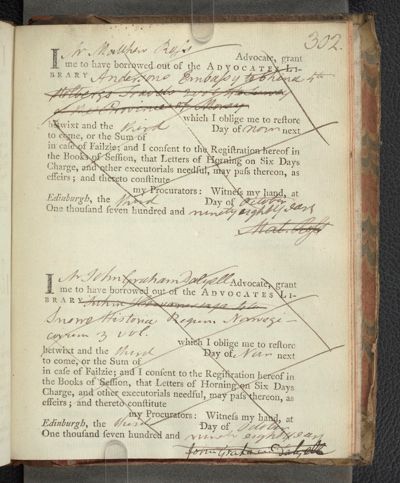 302.
I Mr Matthew Ross Advocate, grant
me to have borrowed out of the ADVOCATES LI-
BRARY Andersons Embassy to China 4to
Travels
of the Province of
betwixt and the third which I oblige me to restore
Day of Novr next
to come, or the Sum of
in case of Failzie; and I consent to the Registration hereof in
the Books of Session, that Letters of Horning on Six Days
Charge, and other executorials needful, may pass thereon, as
effeirs; and thereto constitute
my Procurators: Witness my hand, at
Edinburgh, the third Day of October
One thousand seven hundred and ninety eight years
Mat. Ross
I Mr John Graham Dalyell Advocate, grant
me to have borrowed out of the ADVOCATES LI-
BRARY
Snorro Historia Regum Norvegi-
corum 3 vol.
which I oblige me to restore
betwixt and the third Day of Novr next
to come, or the Sum of
in case of Failzie; and I consent to the Registration hereof in
the Books of Session, that Letters of Horning on Six Days
Charge, and other executorials needful, may pass thereon, as
effeirs; and thereto constitute
my Procurators: Witness my hand, at
Edinburgh, the third Day of October
One thousand seven hundred and ninety eight years
John Graham Dalyell